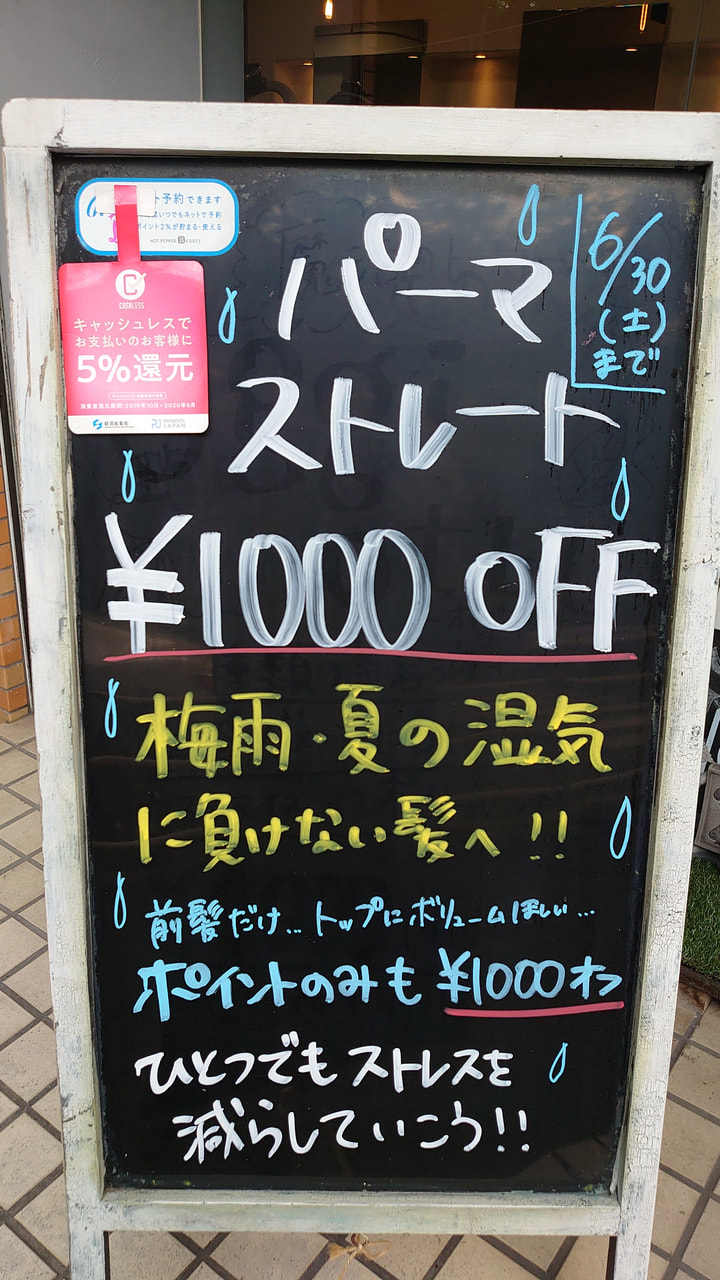 ト予約できます
いつでもネットで予約
ポイント2%が貯まる・使える
HOT PEPPER Beauty
CASHLESS
キャッシュレスで
お支払いのお客様に
5%還元
消費者還元期間:2019年10月~2020年6月
経済産業省
JAPAN
6/30
(土)
まで
パーマ
ストレート
¥1000 OFF
梅雨・夏の湿気
に負けない髪へ!!
前髪だけ…トップにボリュームほしい…
ポイントのみも ¥1000オフ
ひとつでもストレスを
減らしていこう!!